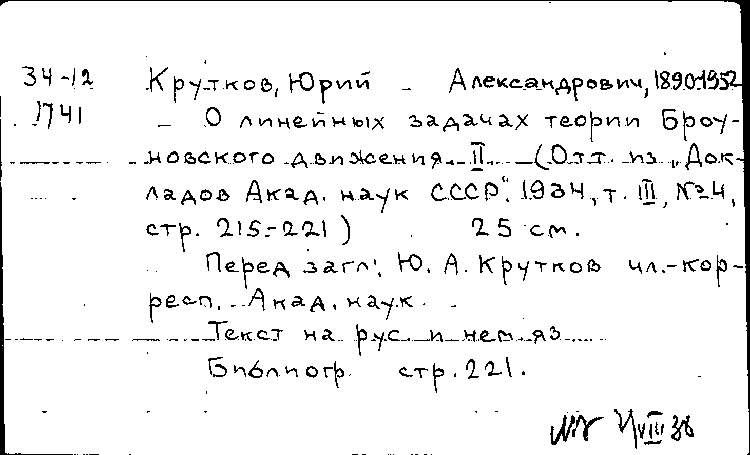 34-12 Крутков, Юрий - Александрович, 1890-1952
1741 - О линейных задачах теории Броу-
новского движения. II (Отт. из „Док-
ладов Акад. наук СССР". 1934, т. III, №4,
стр. 215-221) 25 см.
Перед загл.: Ю. А. Крутков чл.-кор-
респ. Акад. наук.
Текст на рус. и нем. яз.
Библиогр. стр. 221.
VIII 38